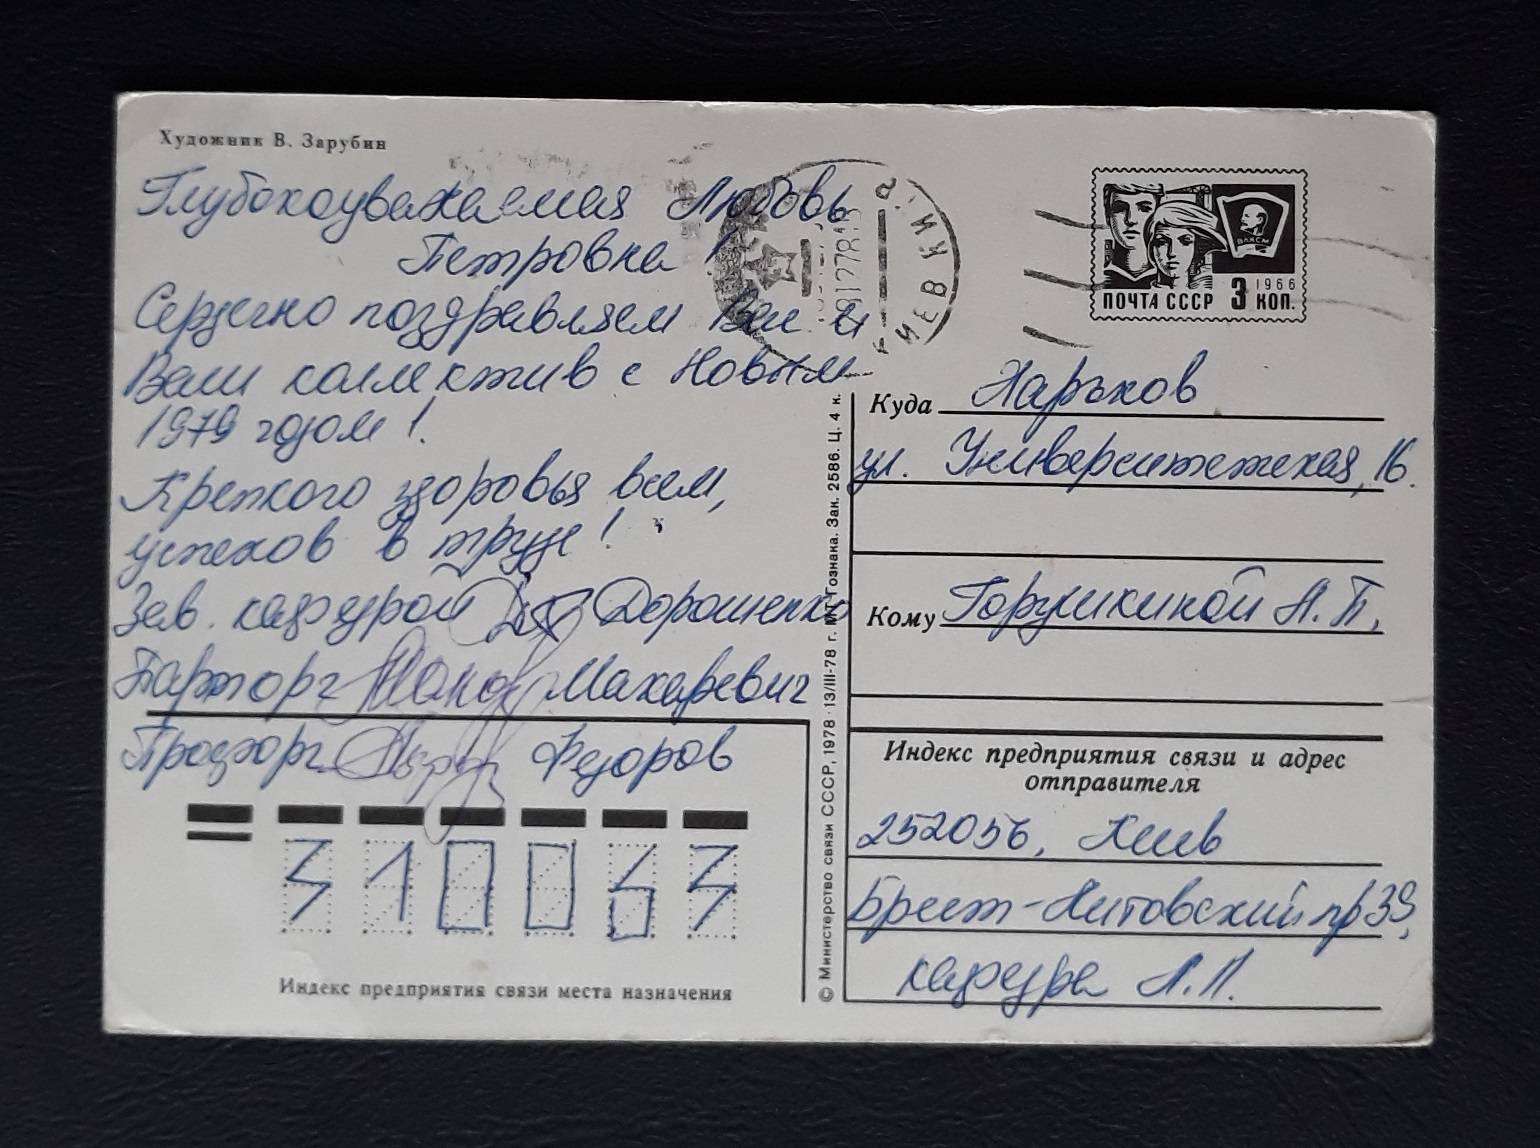 Художник В. Зарубин
Глубокоуважаемая Любовь
Петровна!
Сердечно поздравляем Вас и
Ваш коллектив с Новым
1979 годом!
Крепкого здоровья всем,
успехов в труде!
Зав. кафедрой Дорошенко
Парторг Макаревич
Профорг Федоров
310063
Индекс предприятия связи места назначения
© Министерство связи СССР, 1978 · 13/III-78 г. МТ Гознака. Зак. 2586. Ц. 4 к.
КИЇВ
КИЕВ
ВЛКСМ
1966
ПОЧТА СССР 3 КОП.
Куда Харьков
ул. Университетская, 16.
Кому Горушкиной Л. П.
Индекс предприятия связи и адрес
отправителя
252056, Киев
Брест-Литовский пр 39,
кафедра